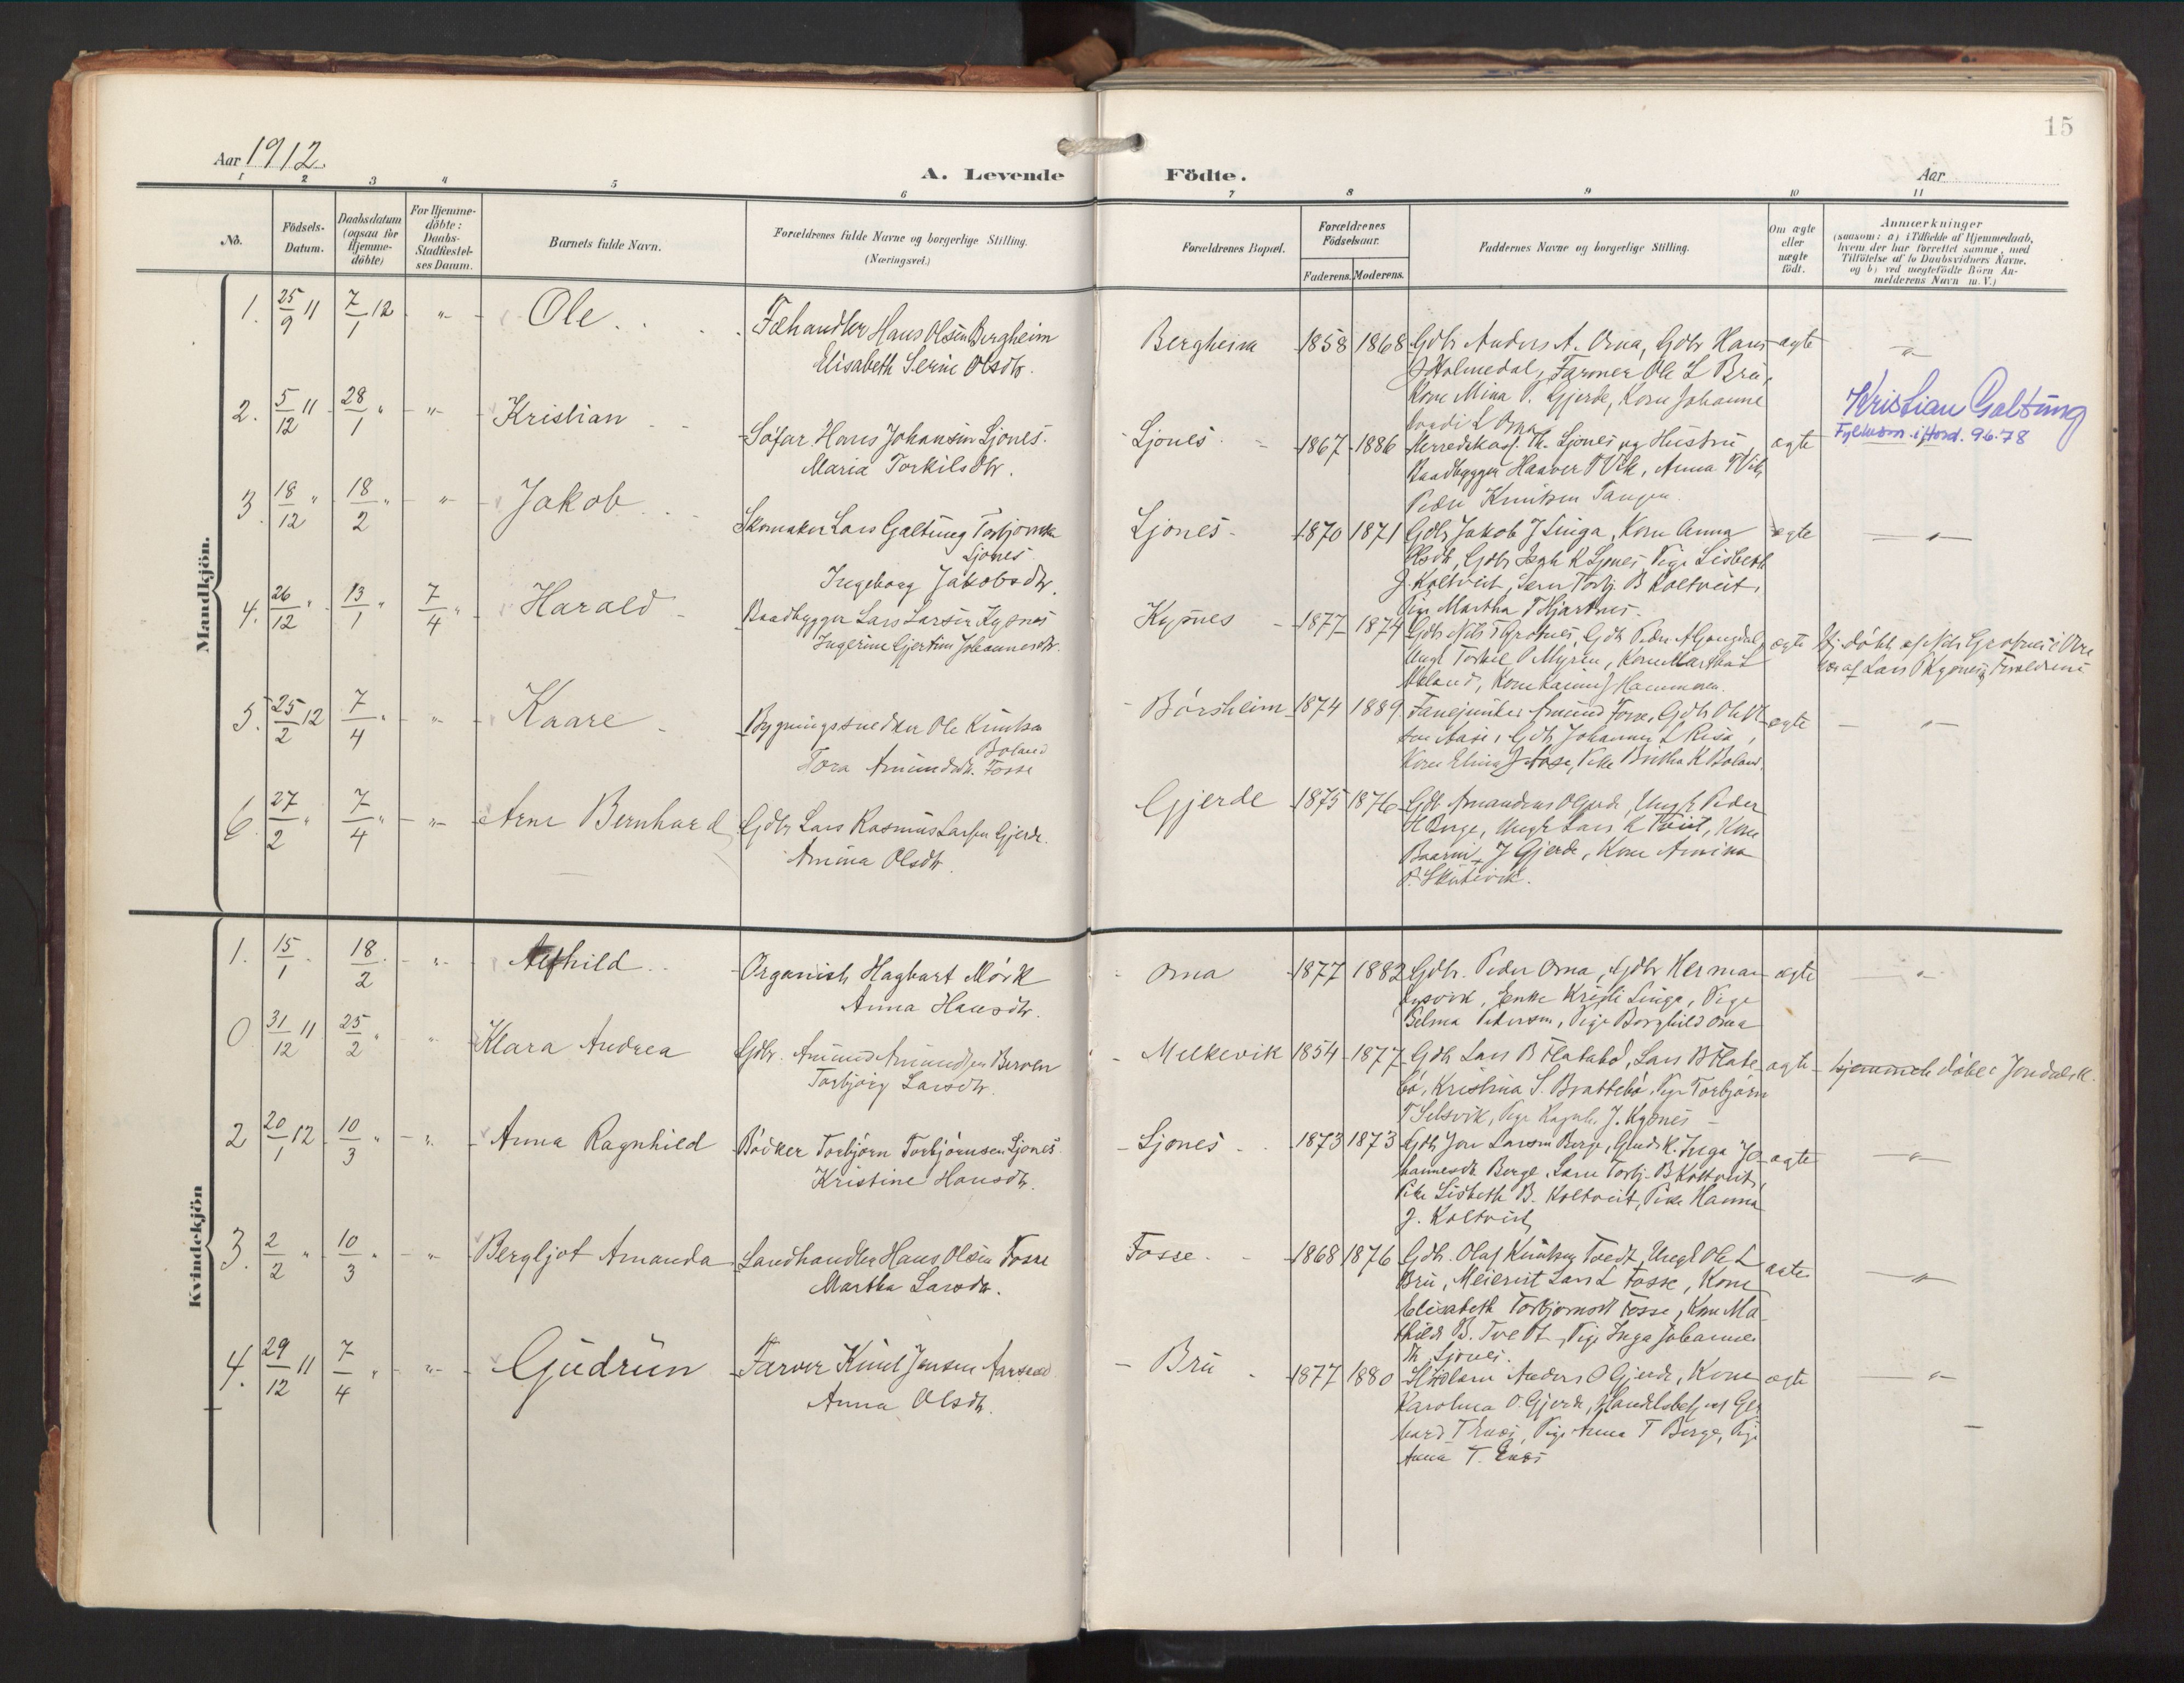 15
Aar 1912.
A. Levende Födte.
Aar
1 2 3 4 5 6 7 8 9 10 11
No.
Födsels-
Datum.
Daabsdatum
(ogsaa for
Hjemme-
döbte)
For Hjemme-
döbte:
Daabs-
Stadfæstel-
ses Datum.
Barnets fulde Navn.
Forældrenes fulde Navne og borgerlige Stilling.
(Næringsvei.)
Forældrenes Bopæl.
Forældrenes
Födselsaar.
Faderens. Moderens.
Faddernes Navne og borgerlige Stilling.
Om ægte
eller
uægte
födt.
Anmærkninger
(saasom: a) i Tilfælde af Hjemmedaab,
hvem der har forrettet samme, med
Tilföielse af to Daabsvidners Navne,
og b) ved uægtefödte Börn An-
melderens Navn m. V.)
Mandkjön.
1. 25/9 11 7/1 12 " Ole
Fæhandler Hans Olsen Bergheim
Elisabeth Serine Olsdtr.
Bergheim 1858 1868
Gdbr Anders A. Oma, Gdbr Hans
J Holmedal, Farmer Ole L Bru,
Kone Mina P. Gjerde, Kone Johanne
L Oma
ægte "
2. 5/12 11 28/1 " " Kristian
Sófar. Hans Johansen Ljones.
Maria Torkilsdtr.
Ljones 1867 1886
Herredskass. Th. Ljones og Hustru,
Baadbygger Haaver P Vik, Anna P Vik,
Peder Knutsen Tangen.
ægte
Kristian Galtung
Fylkesm. i Hord. 9.6.78
3. 18/12 " 18/2 " " Jakob
Skomaker Lars Galtung Torbjornsen
Ljones
Ingeborg Jakobsdtr.
Ljones 1870 1871
Gdbr Jakob J Linga, Kone Anna
Olsdtr, Gdbr K Ljones, Pige Lisbeth
J. Koltveit, Torbj. B Koltveit,
Pige Martha T Hjartnes.
ægte "
4. 26/12 " 13/1 " 7/4 " Harald
Baadbygger Lars Larsen Kypnes
Ingerine Gjertine Johannesdtr.
Kypnes 1877 1874
Gdbr Nils T Grotnes, Gdbr Peder A Gangdal,
Ungk Torkil P Myren, Kone Martha L
Hammeren.
ægte
Hj. döbt af Nils Grotnes i Over
vær af Lars P Kypnes og Forældrene
5. 25/2 12 7/4 " " Kaare
Bygningssnedker Ole Knutsen
Boland
Tora Amundsdtr. Fosse
Börsheim 1874 1889
Fanejunker Amund Fosse, Gdbr Ole
Aase, Gdbr Johannes L Risa,
Kone Elina J Aase, Pike Britha K Boland.
ægte "
6. 27/2 " 7/4 " " Arne Bernhard
Gdbr Lars Rasmus Larsen Gjerde.
Amina Olsdtr.
Gjerde 1875 1876
Gdb Amandus O Gjerde, Ungk Peder
H Berge, Ungk Lars K Tveit, Kone
J Gjerde, Kone Amina
P. Skutevik.
Kvindekjön
1. 15/1 " 18/2 " " hild
Organist Hagbart Mörk
Anna Hansdtr.
Oma 1877 1882
Gdbr. Peder Oma, Gdbr Herman
Lysvik, Enke Kristi Linga, Pige
Selma Pedersen, Pige Borghild Oma
ægte "
0 31/12 11 25/2 " " Klara Andrea
Gdbr. Amund Amundsen Berven
Torbjörg Larsdtr.
Melkevik 1854 1877
Gdb Lars B Flatebö, Lars B Flate
bö, Kristina S. Brattebö, Pige Torbjörn
T Selsvik, Pige Ragnh. J. Kypnes
ægte
hjemmedöbt i Jondal K.
2 20/1 12 10/3 " " Anna Ragnhild
Bödker Torbjörn Torbjörnsen Ljones.
Kristine Hansdtr.
Ljones 1873 1873
Gdb Jon Larsen Berge, Gmds K. Inga Jo
hannesdtr Berge, Torbj. B Koltveit,
Pike Lisbeth B. Koltveit, Pike Hanna
J. Koltveit
ægte "
3. 2/2 " 10/3 " " Bergljot Amanda
Landhandler Hans Olsen Fosse
Martha Larsdtr.
Fosse 1868 1876
Gdb. Olaf Knutsen Tvedt, Ungk Ole L
Bru, Meierist Lars L Fosse, Kone
Elisabeth Torbjornsdt Fosse, Kone Ma-
thilde B. Tvedt, Pige Inga Johannes
dtr Ljones.
ægte "
4. 29/12 11 7/4 " " Gudrun
Farver Knut Jensen Aarsand
Anna Olsdtr.
Bru 1877 1880
Anders O Gjerde, Kone
Karolina O. Gjerde, Handelsbetj. Ger
hard T Enes, Pige Anna T Berge, Pige
Anna T. Enes
ægte "